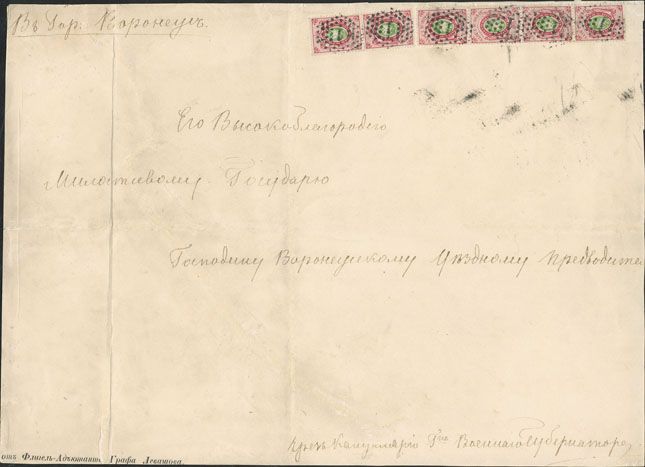 Въ Гор. Воронежъ.
Его Высокоблагородію
Милостивому Государю
Господину Воронежскому Уѣздному Предводите
Чрезъ Канцелярію Г<sup>на</sup> Военнаго Губернатора
отъ Флигель-Адъютанта Графа Левашова.